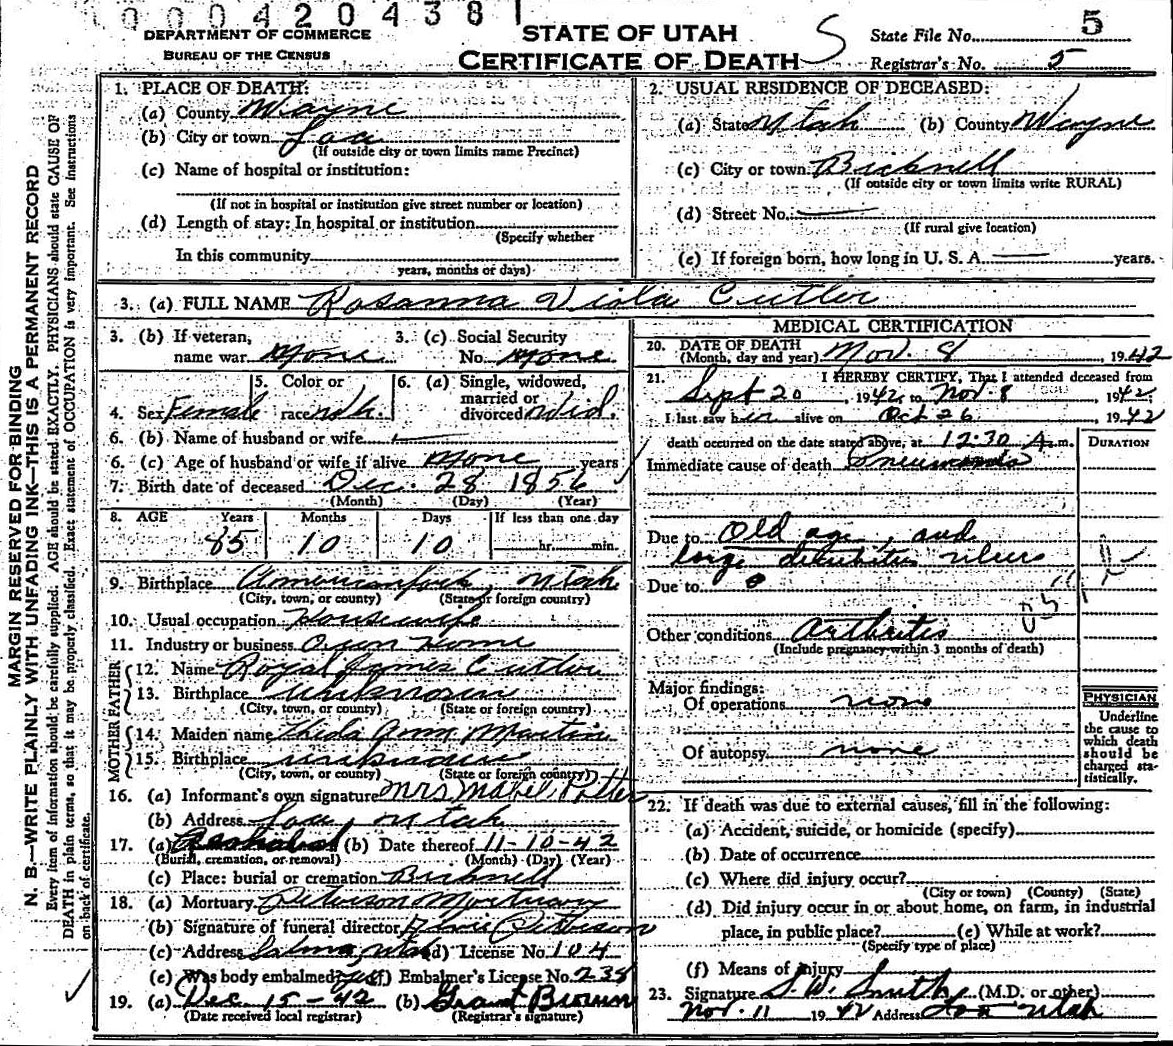 000420438
DEPARTMENT OF COMMERCE
BUREAU OF THE CENSUS
STATE OF UTAH
CERTIFICATE OF DEATH
S
State File No. 5
Registrar's No. 5
MARGIN RESERVED FOR BINDING
N. B.—WRITE PLAINLY WITH UNFADING INK—THIS IS A PERMANENT RECORD
Every item of information should be carefully supplied. AGE should be stated EXACTLY. PHYSICIANS should state CAUSE OF
DEATH in plain terms, so that it may be properly classified. Exact statement of OCCUPATION is very important. See instructions
on back of certificate.
1. PLACE OF DEATH:
(a) County Wayne
(b) City or town Loa
(If outside city or town limits name Precinct)
(c) Name of hospital or institution:
(If not in hospital or institution give street number or location)
(d) Length of stay: In hospital or institution
(Specify whether
In this community
years, months or days)
2. USUAL RESIDENCE OF DECEASED:
(a) State Utah (b) County Wayne
(c) City or town Bicknell
(If outside city or town limits write RURAL)
(d) Street No.
(If rural give location)
(e) If foreign born, how long in U. S. A. years.
3. (a) FULL NAME Rosanna Viola Cutler
3. (b) If veteran,
name war None
3. (c) Social Security
No. None
4. Sex Female
5. Color or
race Wh.
6. (a) Single, widowed,
married or
divorced Wid.
6. (b) Name of husband or wife
6. (c) Age of husband or wife if alive None years
7. Birth date of deceased Dec. 28 1856
(Month) (Day) (Year)
8. AGE Years Months Days If less than one day
85 10 10 hr. min.
9. Birthplace American fork, Utah
(City, town, or county) (State or foreign country)
10. Usual occupation Housewife
11. Industry or business Own Home
FATHER
12. Name Royal James Cutler
13. Birthplace unknown
(City, town, or county) (State or foreign country)
MOTHER
14. Maiden name Theda Ann Martin
15. Birthplace unknown
(City, town, or county) (State or foreign country)
16. (a) Informant's own signature Mrs Mabel
(b) Address Loa, Utah
17. (a) (b) Date thereof 11-10-42
(Burial, cremation, or removal) (Month) (Day) (Year)
(c) Place: burial or cremation Bicknell
18. (a) Mortuary Peterson Mortuary
(b) Signature of funeral director Peterson
(c) Address Salina, Utah (d) License No. 104
(e) Was body embalmed? Yes (f) Embalmer's License No. 238
19. (a) Dec 15-42 (b) Grant Brown
(Date received local registrar) (Registrar's signature)
MEDICAL CERTIFICATION
20. DATE OF DEATH
(Month, day and year) Nov. 8, 1942
21. I HEREBY CERTIFY, That I attended deceased from
Sept 20, 1942, to Nov. 8, 1942;
I last saw her alive on Oct 26, 1942
death occurred on the date stated above, at 12:30 A.m.
DURATION
Immediate cause of death Pneumonia
Due to Old age, and
large decubitus ulcers
Due to
Other conditions Arthritis
(Include pregnancy within 3 months of death)
Major findings:
Of operations none
Of autopsy none
PHYSICIAN
Underline
the cause to
which death
should be
charged sta-
tistically.
22. If death was due to external causes, fill in the following:
(a) Accident, suicide, or homicide (specify)
(b) Date of occurrence
(c) Where did injury occur?
(City or town) (County) (State)
(d) Did injury occur in or about home, on farm, in industrial
place, in public place? (e) While at work?
(Specify type of place)
(f) Means of injury
23. Signature S. W. Smith (M.D. or other)
Nov. 11 1942 Address Loa Utah